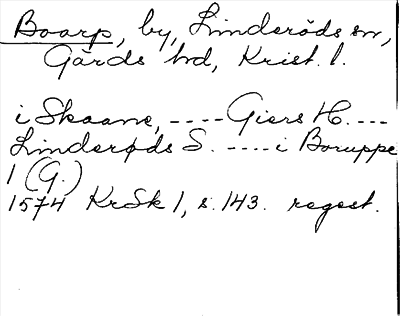 Boarp, by, Linderöds sn,
Gärds hd, Krist. l.
i Skaane, ---- Giers H. ---
Linderøds S. ---- i Boruppe
1 (G.)
1574 KrSk 1, s. 143. regest.